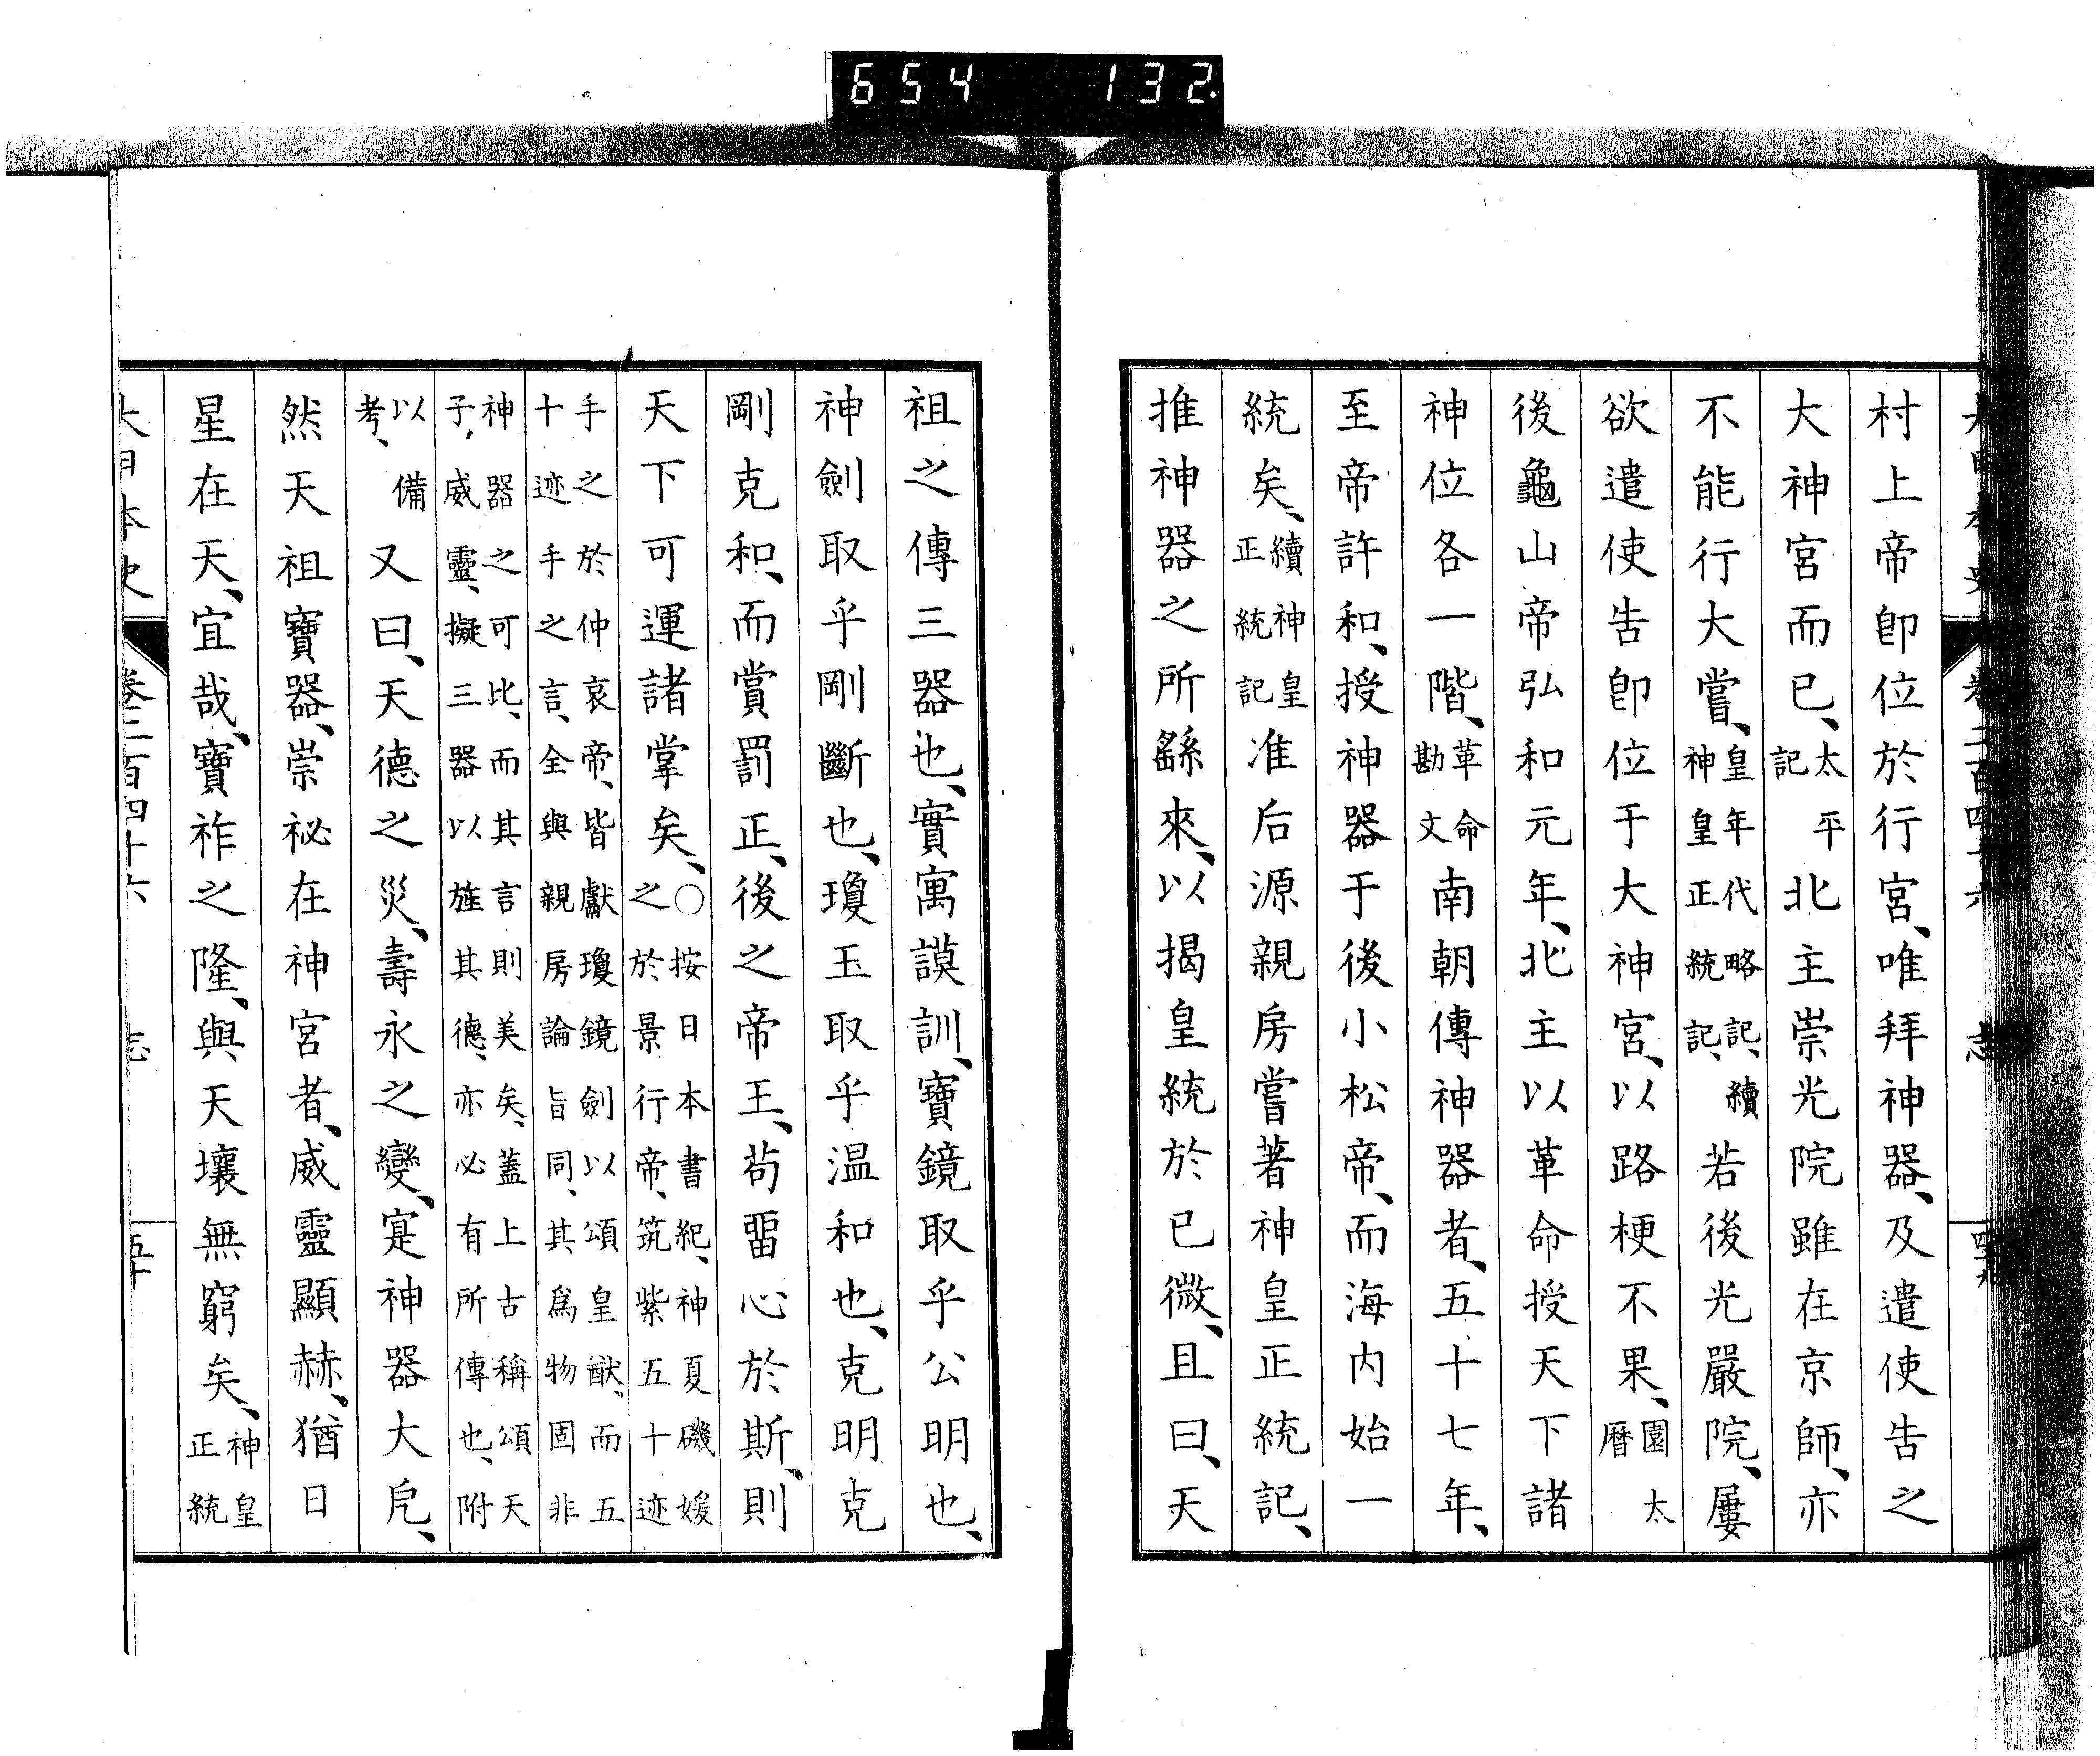 654 132.
大日本史 卷二百四十六 志 四十九
村上帝卽位於行宮、唯拜神器、及遣使告之
大神宮而已、太平記北主崇光院雖在京師、亦
不能行大嘗、皇年代略記、續神皇正統記、若後光嚴院、屢
欲遣使告卽位于大神宮、以路梗不果、園太曆
後龜山帝弘和元年、北主以革命授天下諸
神位各一階、革命勘文南朝傳神器者、五十七年、
至帝許和、授神器于後小松帝、而海內始一
統矣、續神皇正統記准后源親房嘗著神皇正統記、
推神器之所繇來、以揭皇統於已微、且曰、天
祖之傳三器也、實寓謨訓、寶鏡取乎公明也、
神劍取乎剛斷也、瓊玉取乎温和也、克明克
剛克和、而賞罰正、後之帝王、苟畱心於斯、則
天下可運諸掌矣、〇按日本書紀、神夏磯媛之於景行帝、筑紫五十迹
手之於仲哀帝、皆獻瓊鏡劍以頌皇猷、而五十迹手之言、全與親房論旨同、其爲物固非
神器之可比、而其言則美矣、蓋上古稱頌天子、威靈、擬三器以旌其德、亦必有所傳也、附
以備考、又曰、天德之災、壽永之變、寔神器大戹、
然天祖寶器、崇祕在神宮者、威靈顯赫、猶日
星在天、宜哉、寶祚之隆、與天壤無窮矣、神皇正統
大日本史 卷二百四十六 志 五十